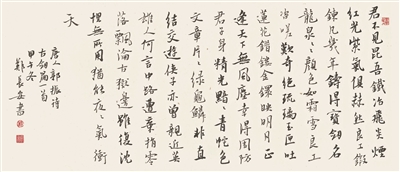 君不見昆吾鐵冶飛炎煙
紅光紫氣俱赫然良工鍛
鍊凡幾年鑄得寶劍名
龍泉〻〻顏色如霜雪良工
咨嗟歎奇絕琉璃玉匣吐
蓮花錯鏤金鐶映明月正
逢天下無風塵幸得周防
君子身精光黯〻青蛇色
文章片〻綠龜鱗非直
結交遊俠子亦曾親近英
雄人何言中路遭棄捐零
落飄淪古獄邊雖復沈
埋無所用猶能夜〻氣衝
天
唐人郭振詩
古劍篇一首
甲午冬
長安書